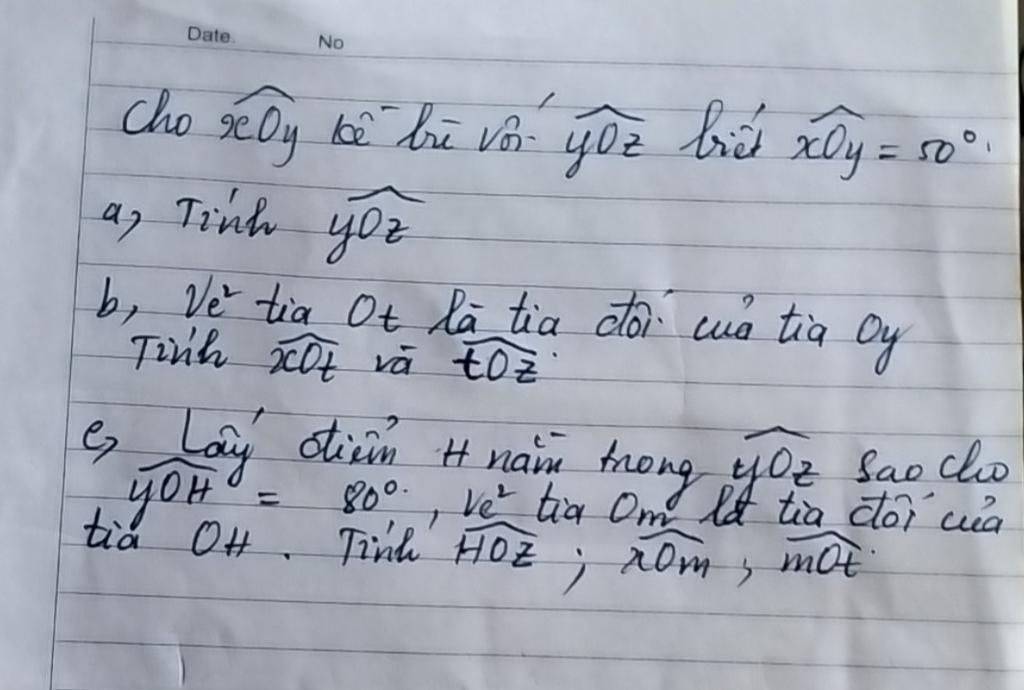 Date. No
Cho xOy kề bù với yOz biết xOy = 50°.
a, Tính yOz
b, Vẽ tia Ot là tia đối của tia Oy
Tính xOt và tOz.
c, Lấy điểm H nằm trong yOz sao cho
yOH = 80°, Vẽ tia Om là tia đối của
tia OH. Tính HOz ; xOm ; mOt.